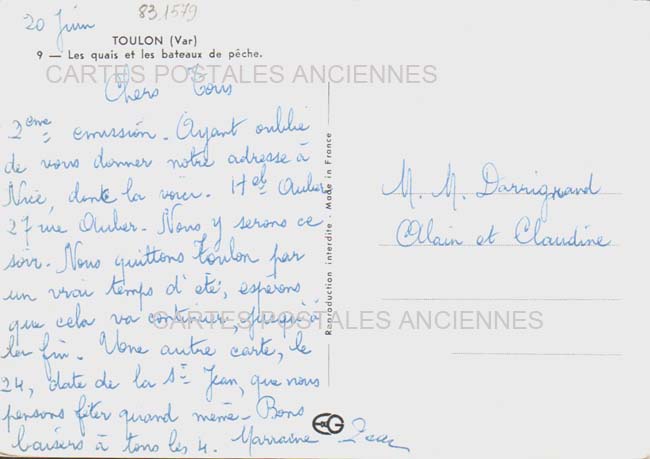 20 Juin
83.1579
TOULON (Var)
9 — Les quais et les bateaux de pêche.
CARTES POSTALES ANCIENNES
Chers Tous
2eme emission. Ayant oublié
de vous donner notre adresse à
Nice, donc la voici. Htel Auber
27 rue Auber. Nous y serons ce
soir. Nous quittons Toulon par
un vrai temps d'été, espérons
que cela va continuer, jusqu'à
la fin. Une autre carte, le
24, date de la St Jean, que nous
pensons fêter quand même. Bons
baisers à tous les 4. Marraine
Reproduction interdite - Made in France
M. M. Darrignand
Alain et Claudine
CARTES POSTALES ANCIENNES